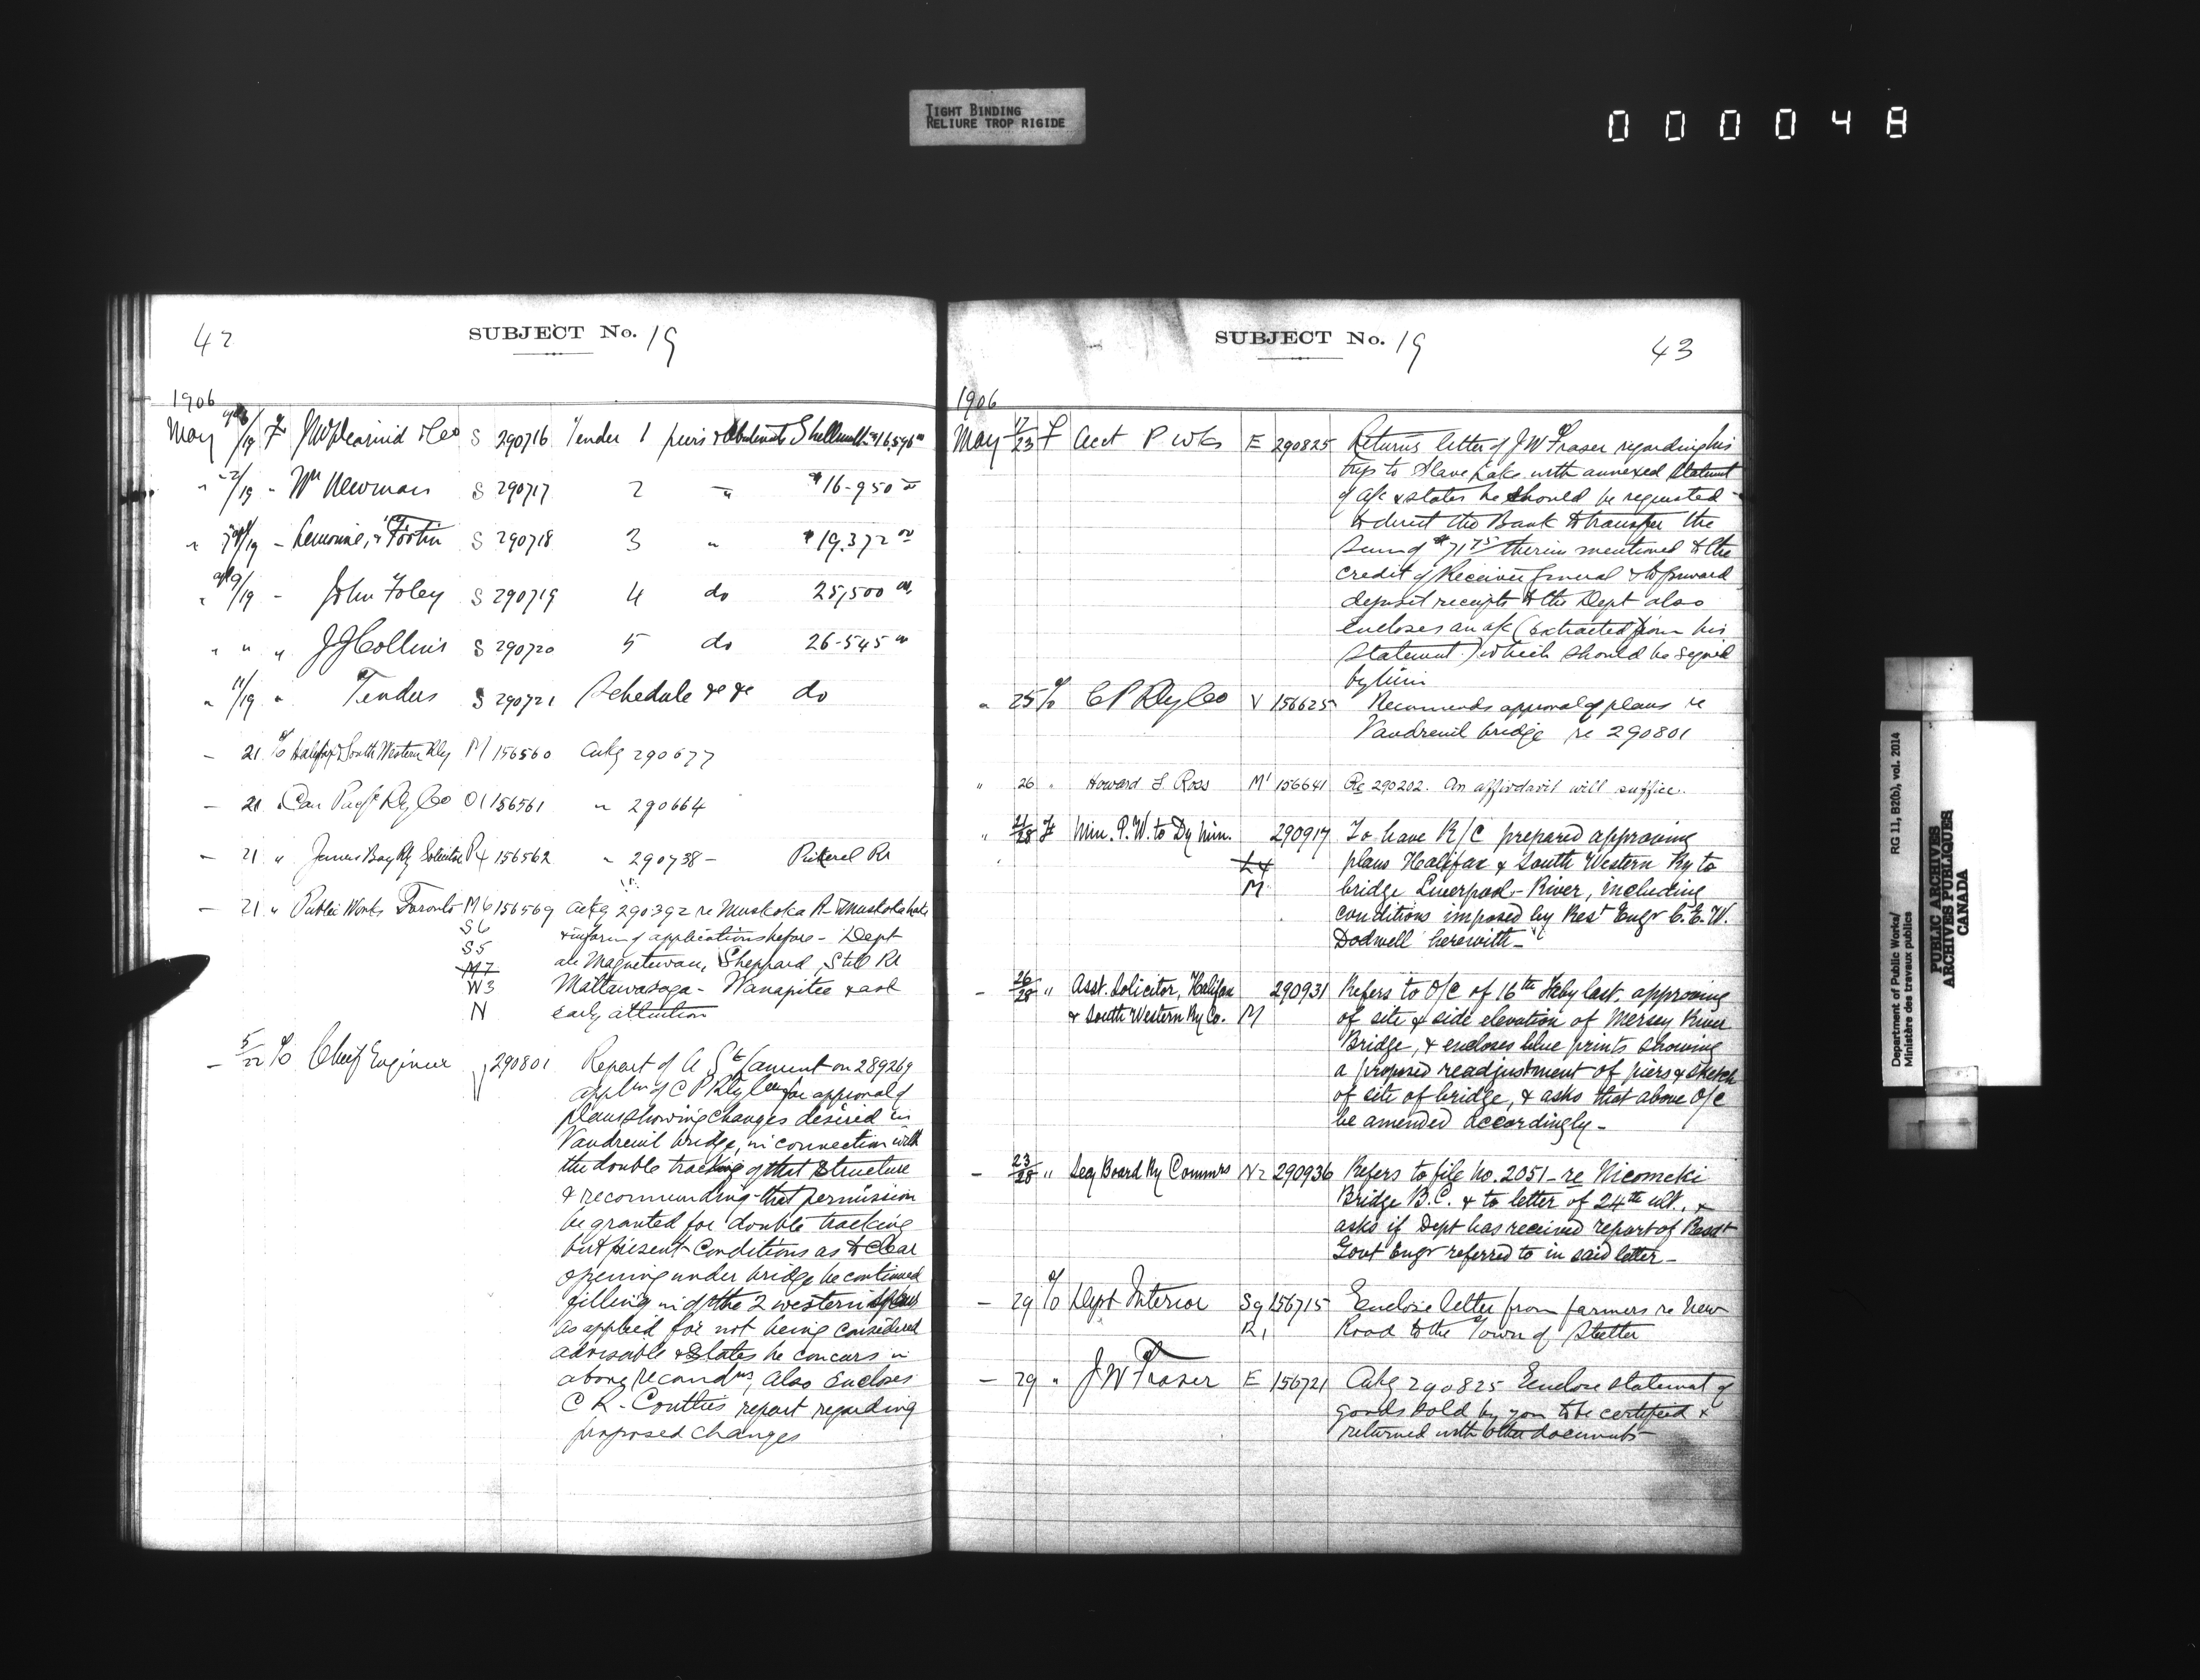 TIGHT BINDING
RELIURE TROP RIGIDE
000048
42
SUBJECT No. 19
1906
May /19 F & Co S 290716 Tender 1 piers & Abutments
" 2/19 " Wm Newman S 290717 2 " $16-950
" /19 - Lemoine, & S 290718 3 " $19.372 00
" 9/19 - John Foley S 290719 4 do 25,500 00
" " " J J Collins S 290720 5 do 26-545 00
" 11/19 " Tenders S 290721 Schedule &c &c do
- 21 % Halifax & South Western Rly M 156560 Ackg 290677
- 21 " Can Pacfc Rly Co O1 156561 " 290664
- 21 " James Bay Rly Solicitor P4 156562 " 290738 - Pickerel Rr
- 21 " Public Works Toronto M6 156569 Ackg 290392 re Muskoka R & Muskoka Lake
S6 & inform of applications before - Dept
S5 are Magnetewan, Sheppard, Still Rr
M7
W3 Mattawasaga - Wanapitee & ask
N early attention
- 5/22 % Chief Engineer V 290801 Report of A St Laurent on 289269
appln of C P Rly Co for approval of
plans showing changes desired in
Vaudreuil bridge, in connection with
the double tracking of that structure
& recommending that permission
be granted for double tracking
but present conditions as to clear
opening under bridge be continued
filling in of the 2 western spans
as applied for not being considered
advisable & states he concurs in
above recomdns, also Encloses
C R - Coutlee's report regarding
proposed changes
SUBJECT No. 19
43
1906
May 17/23 F Acct P Wks E 290825 Returns letter of J W Fraser regarding his
trip to Slave Lake with annexed statement
of a/c & states he should be requested
to direct the Bank to transfer the
sum of $71 75 therein mentioned to the
credit of Receiver General & to forward
deposit receipts to the Dept also
encloses an a/c (extracted from his
statement) which should be signed
by him
" 25 % C P Rly Co V 156625 Recommends approval of plans re
Vaudreuil bridge re 290801
" 26 " Howard S. Ross M1 156641 Re 290202. An affidavit will suffice.
" 21/28 F Min. P.W. to Dy Min. 290917 To have R/C prepared approving
L4 plans Halifax & South Western Ry to
M bridge Liverpool - River, including
conditions imposed by Rest Engr C.E.W.
Dodwell herewith -
- 26/28 " Asst. Solicitor, Halifax 290931 Refers to O/C of 16th Feby last, approving
& South Western Ry Co. M of site & side elevation of Mersey River
Bridge, & encloses blue prints showing
a proposed readjustment of piers & sketch
of site of bridge, & asks that above O/C
be amended accordingly -
- 23/28 " Secy Board Ry Commrs N2 290936 Refers to file No. 2051 - re Nicomeki
Bridge B.C. & to letter of 24th ult., &
asks if Dept has received report of Resdt
Govt Engr referred to in said letter -
- 29 % Dept Interior S9 156715 Enclose letter from farmers re New
R1 Road to the Town of Stettler
- 29 " J W Fraser E 156721 Ackg 290825 Enclose statement of
goods sold by you to be certified &
returned with other documents
Department of Public Works/
Ministère des travaux publics
RG 11, B2(b), vol. 2014
PUBLIC ARCHIVES
ARCHIVES PUBLIQUES
CANADA